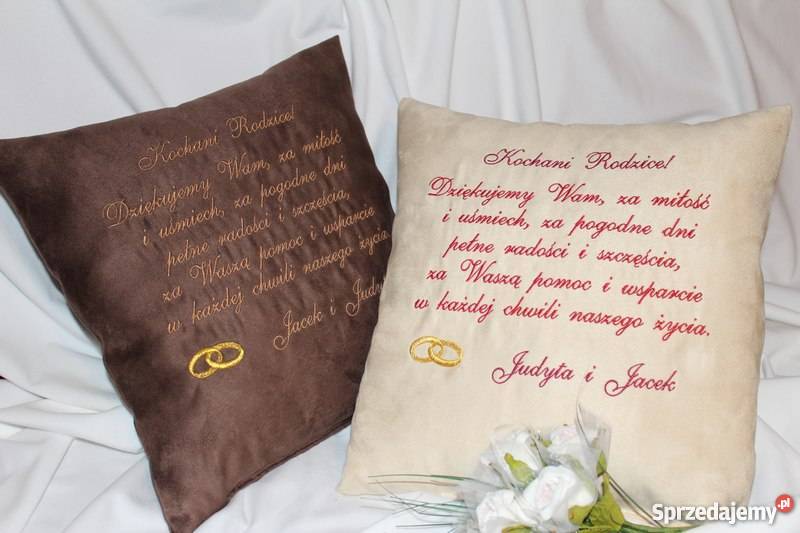 Kochani Rodzice!
Dziękujemy Wam, za miłość
i uśmiech, za pogodne dni
pełne radości i szczęścia,
za Waszą pomoc i wsparcie
w każdej chwili naszego życia.
Jacek i Judyta
Kochani Rodzice!
Dziękujemy Wam, za miłość
i uśmiech, za pogodne dni
pełne radości i szczęścia,
za Waszą pomoc i wsparcie
w każdej chwili naszego życia.
Judyta i Jacek
Sprzedajemy.pl